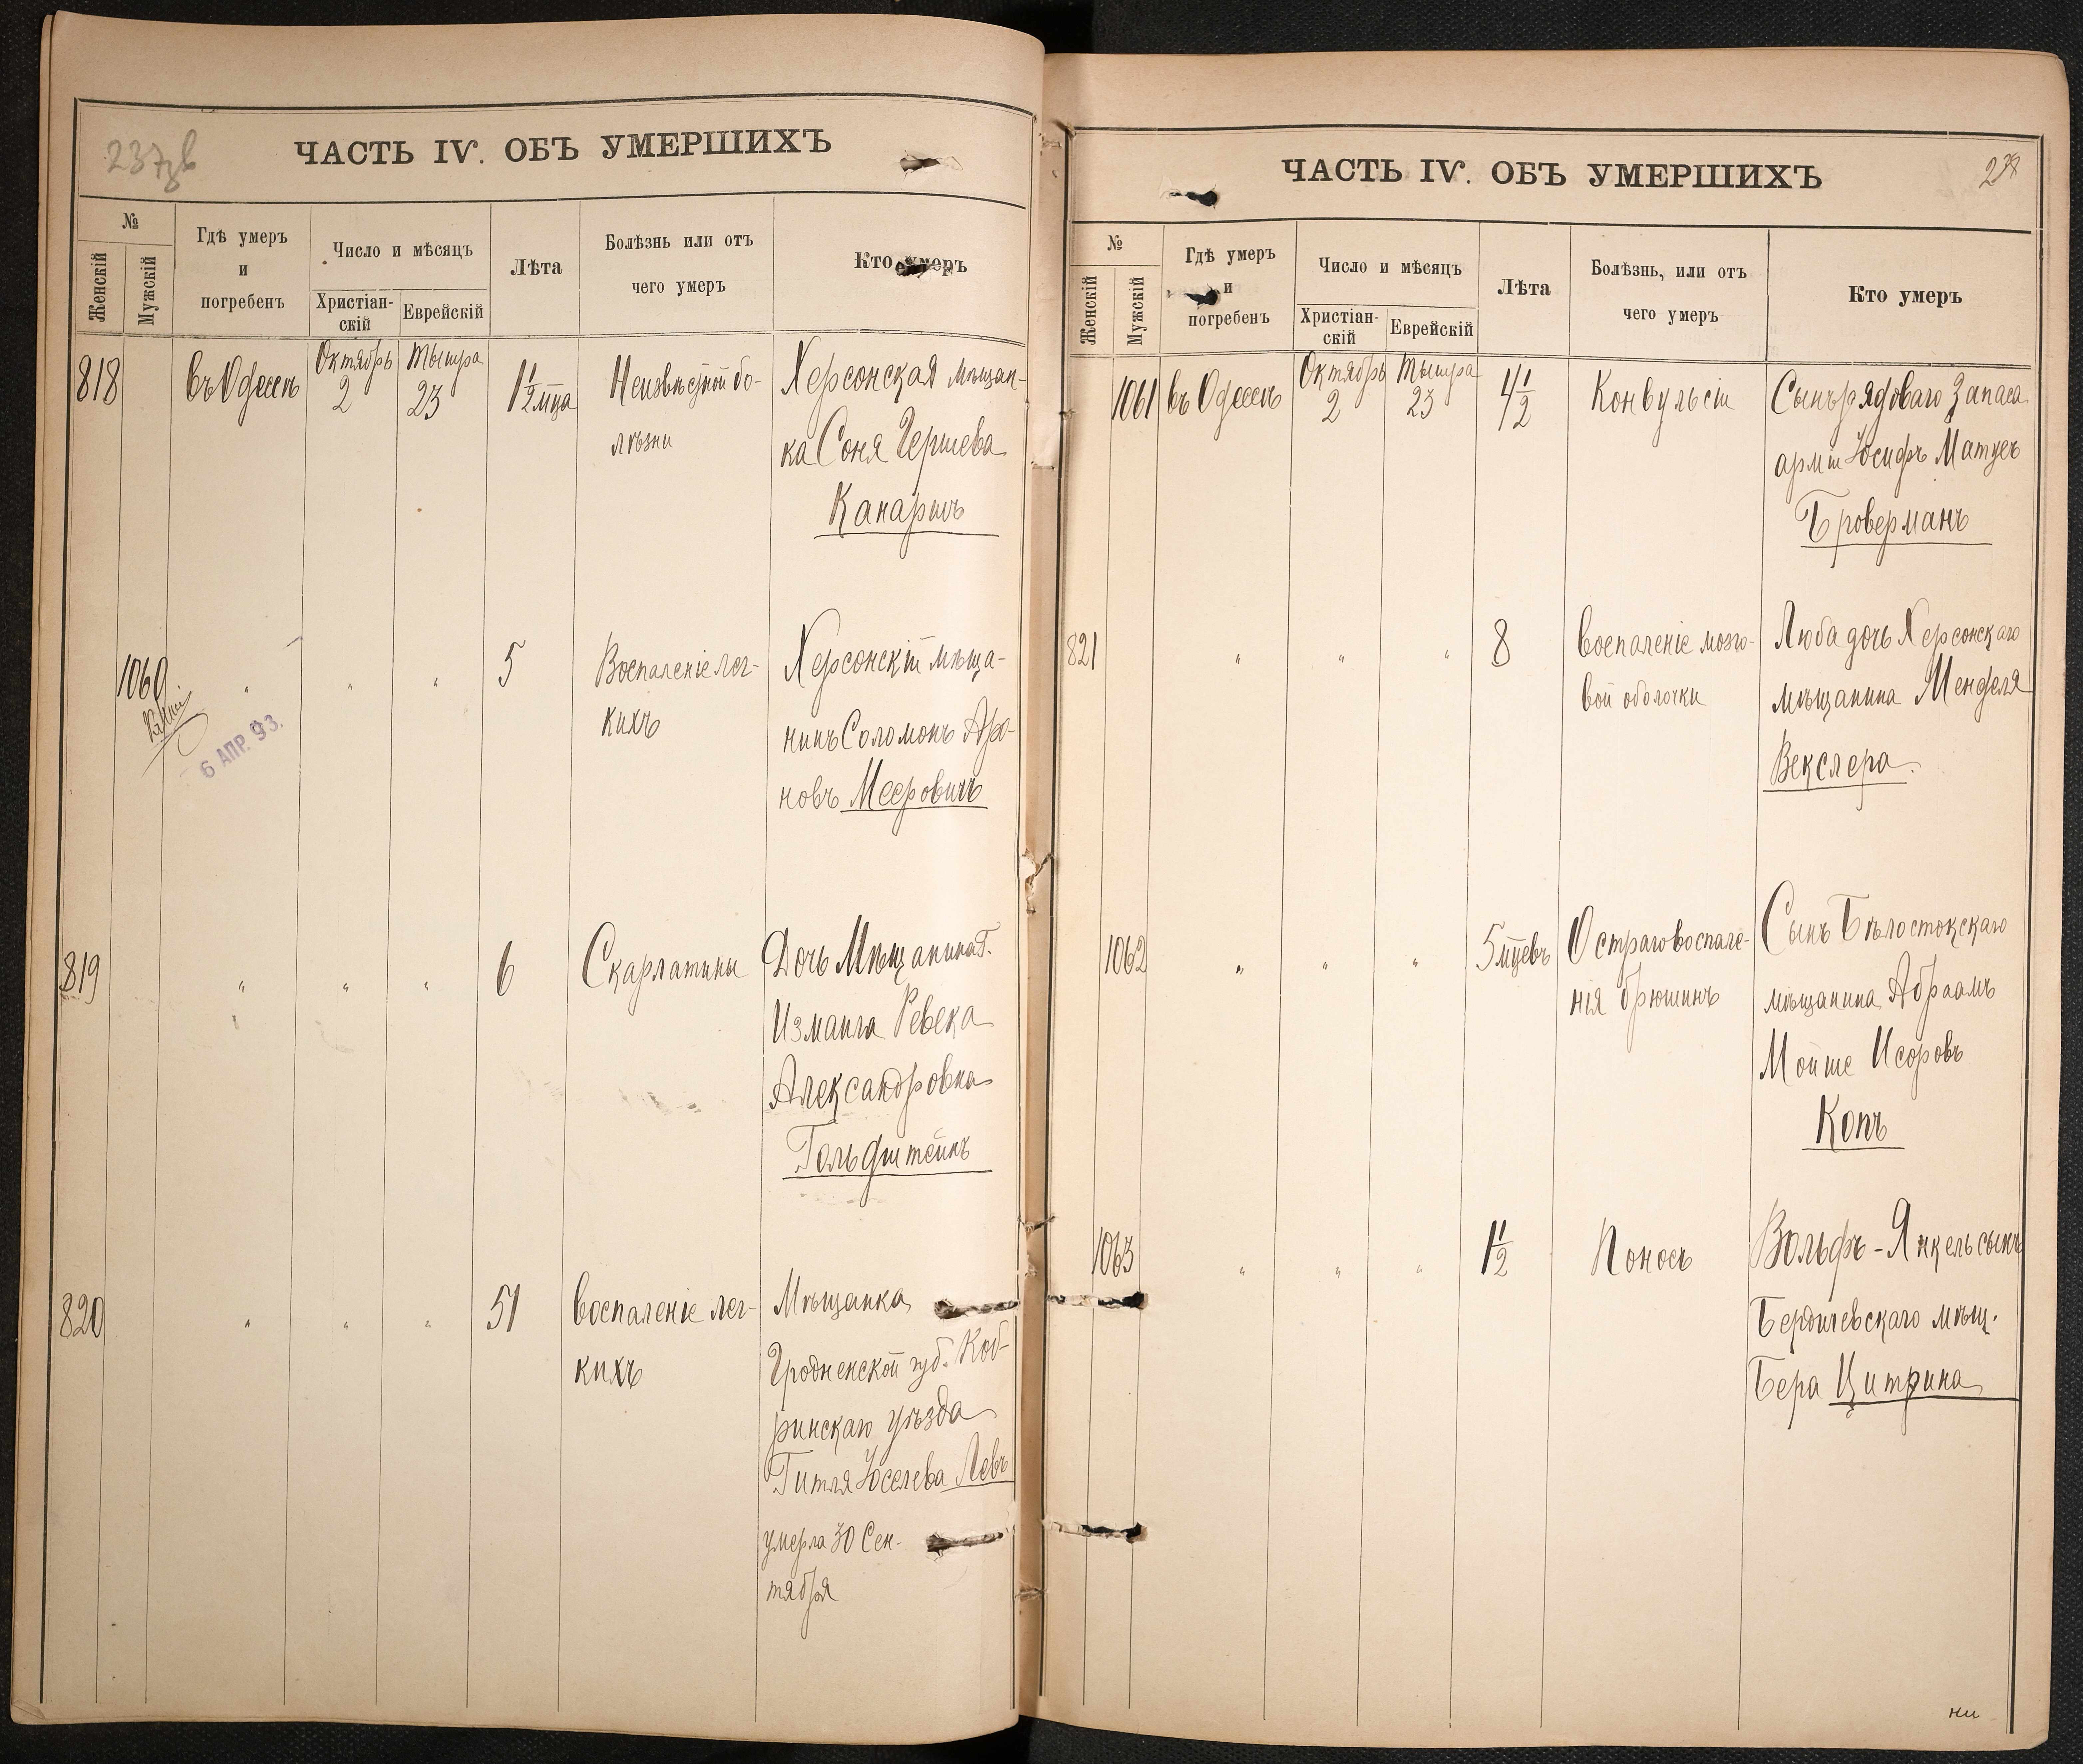 237зв
ЧАСТЬ IV. ОБЪ УМЕРШИХЪ
№
Женскій
Мужскій
Гдѣ умеръ
и
погребенъ
Число и мѣсяцъ
Христіан-
скій
Еврейскій
Лѣта
Болѣзнь или отъ
чего умеръ
Кто умеръ
818 въ Одессѣ Октябрь 2 Тышра 23 1½ мца Неизвѣстной бо- Херсонская мѣщан-
лѣзни ка Соня Гершева
Канаричъ
1060 " " " 5 Воспаленіе лег- Херсонскій мѣща-
кихъ нинъ Соломонъ Аро-
новъ Мееровичъ
6 АПР. 93.
819 " " " 6 Скарлатины Дочь Мѣщанина Г.
Измаила Ревека
Александровна
Гольдштейнъ
820 " " " 51 воспаленіе лег- Мѣщанка
кихъ Гродненской губ. Коб-
ринскаго уѣзда
Гитля Юселева Левъ
умерла 30 Сен-
тября
238
ЧАСТЬ IV. ОБЪ УМЕРШИХЪ
№
Женскій
Мужскій
Гдѣ умеръ
и
погребенъ
Число и мѣсяцъ
Христіан-
скій
Еврейскій
Лѣта
Болѣзнь, или отъ
чего умеръ
Кто умеръ
1061 въ Одессѣ Октябрь 2 Тышра 23 4½ Конвульсіи Сынъ рядоваго запаса
арміи Іосифъ Матусъ
Броверманъ
821 " " " 8 воспаленіе мозго- Люба дочь Херсонскаго
вой оболочки мѣщанина Менделя
Векслера.
1062 " " " 5 мцевъ Остраго воспале- Сынъ Бѣлостокскаго
нія брюшинъ мѣщанина Абраамъ
Мойше Исоровъ
Копъ
1063 " " " 1½ Поносъ Вольфъ-Янкель сынъ
Бердичевскаго мѣщ.
Бера Цитрина
ни